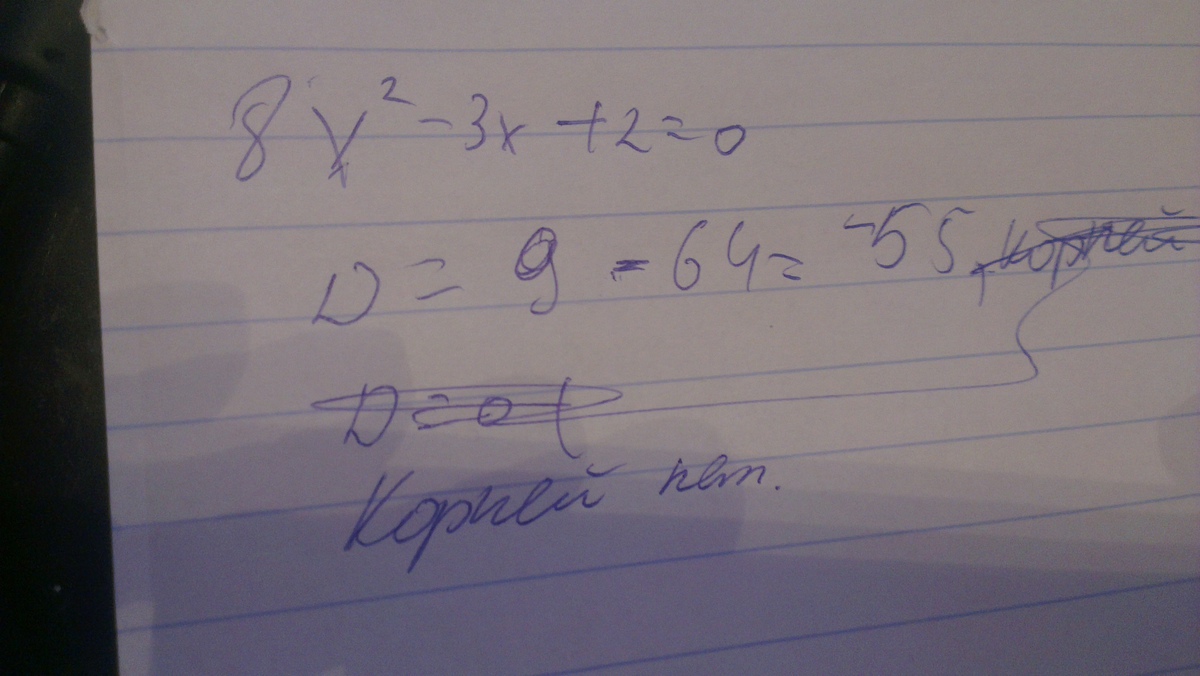 8x² - 3x + 2 = 0
D = 9 - 64 = -55, корней
D = 0
Корней нет.